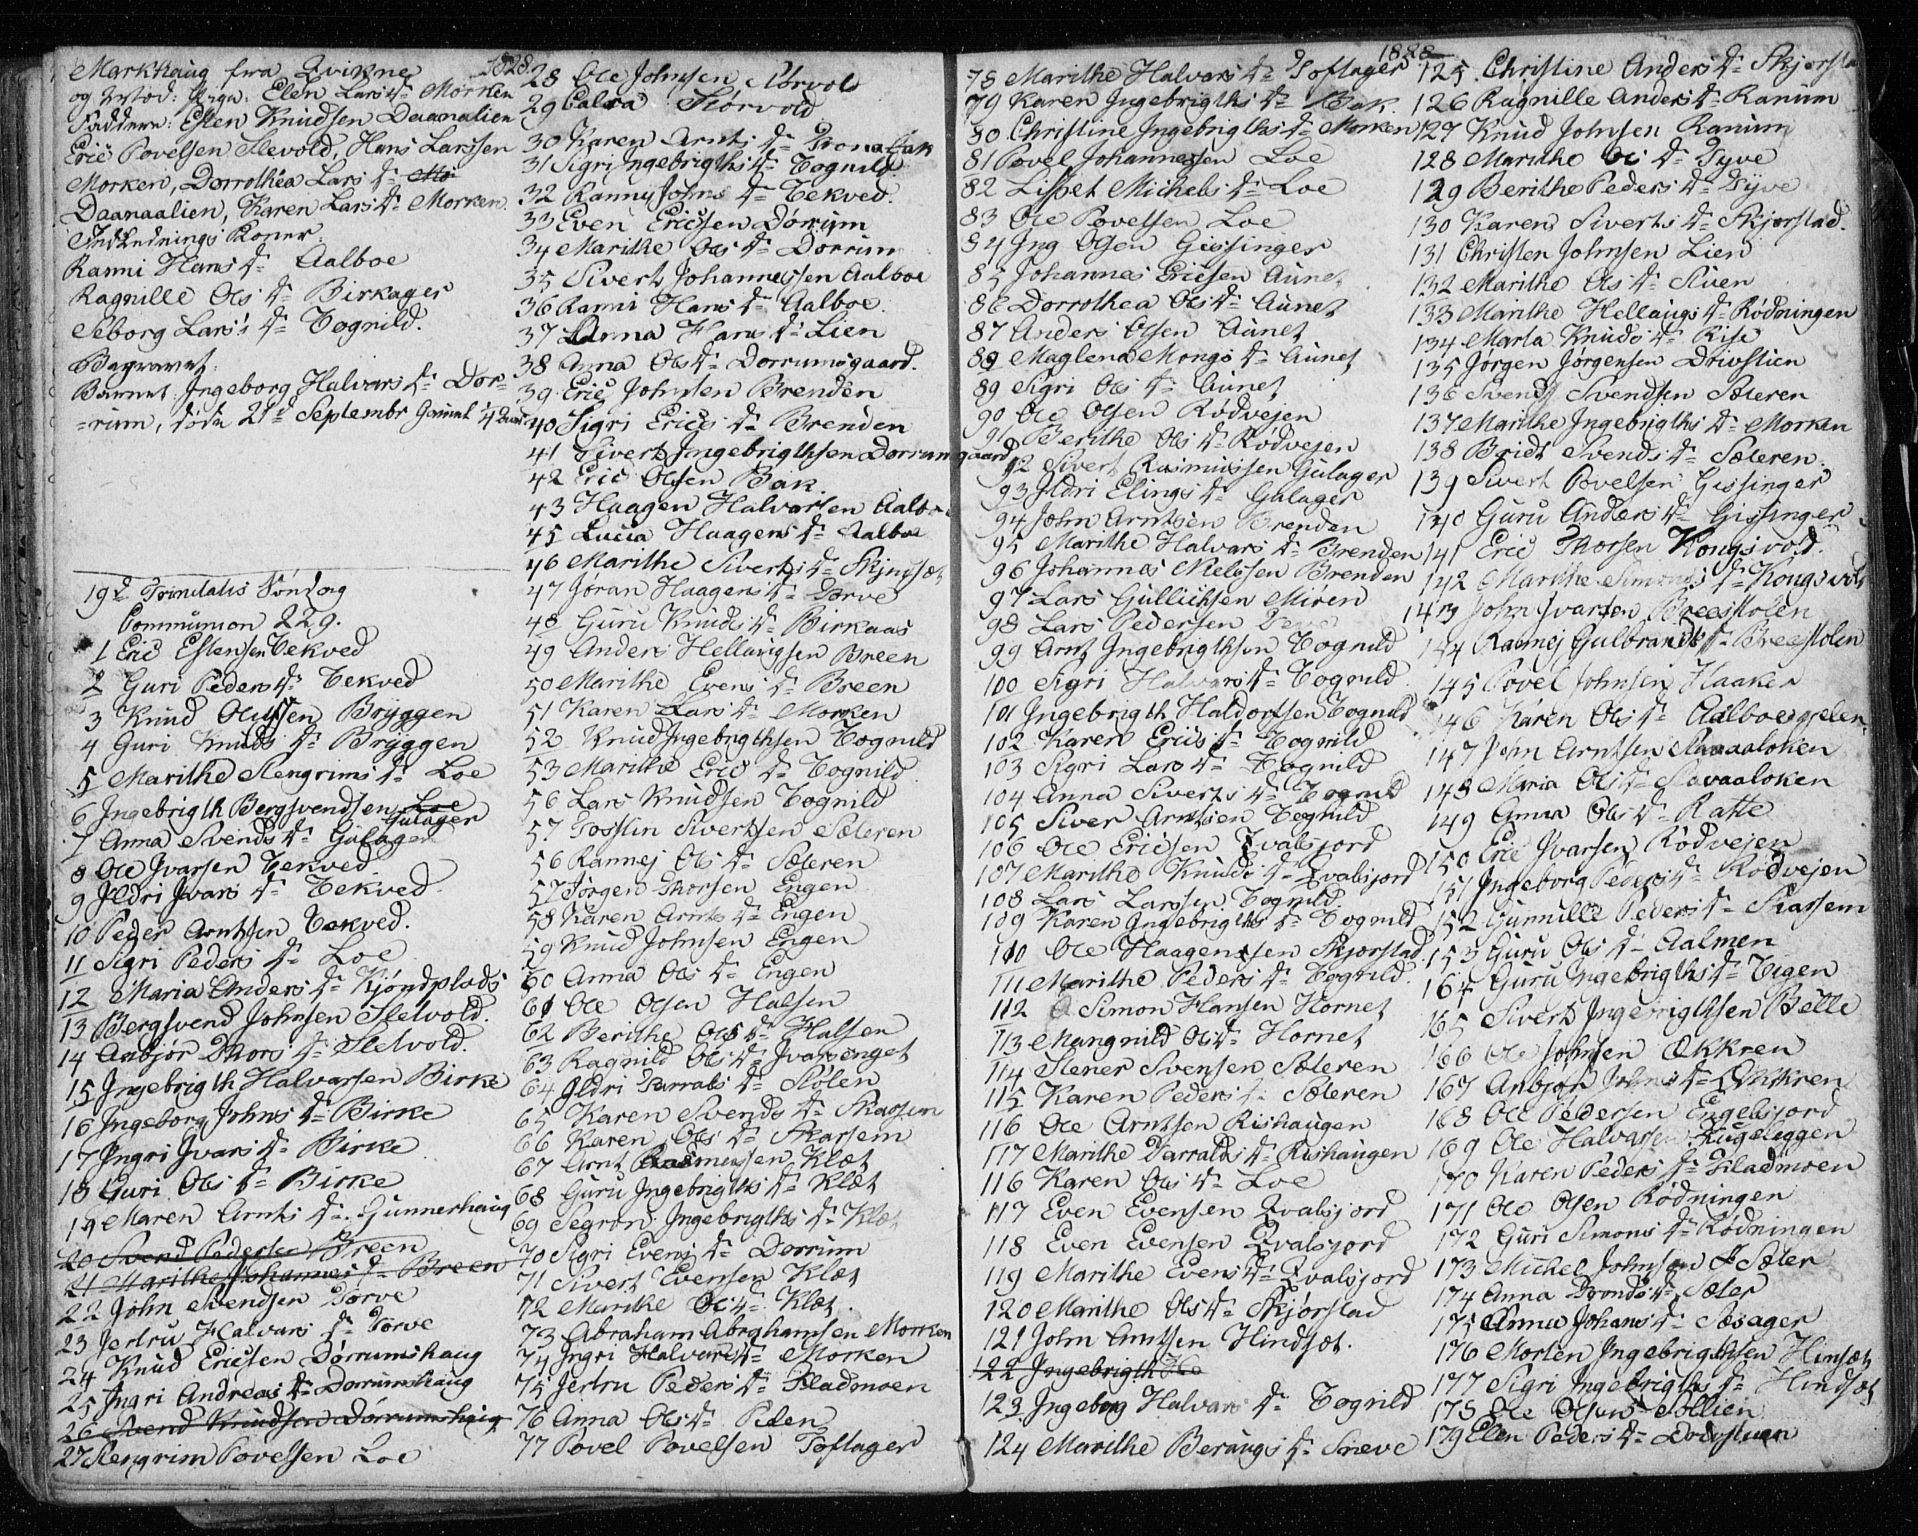 1828
Markhaug fra Qvikne
og Mod: Pige: Elen Lars Dr Morken
Faddere: Esten Knudsen Daanalien
Eric Povelsen Slevold, Hans Larssen
Morken, Dorrothea Lars Dr Mo
Daanaalien, Karen Lars Dr Morken
Indlednings Koner:
Ranni Hans Dr Aalboe
Ragnille Ols Dr Birkager
Seborg Lars's Dr Tognild.
Begravet:
Barnet Ingeborg Halvars Dr Dor-
-rum, døde 21d Septembr Gamel 4
19d Trinitatis Søndag
Communion 229.
1 Eric Estensen Tekved
2 Guri Peders Dr Tekved
3 Knud Olufsen Bryggen
4 Guri Knuds Dr Bryggen
5 Marithe Stengrims Dr Loe
6 Ingebrigth Bergsvendsen Loe Gulager
7 Anna Svends Dr Gulager
8 Ole Ivarsen Tekved
9 Ildri Ivars Dr Tekved
10 Peder Arntsen Tekved.
11 Sigri Peders Dr Loe
12 Maria Anders Dr Kjøndplads
13 Bergsvend Johnsen Sletvold.
14 Anbjør Thors Dr Sletvold.
15 Ingebrigth Halvarsen Birke
16 Ingeborg Johns Dr Birke
17 Ingri Ivars Dr Birke
18 Guri Ols Dr Birke
19 Maren Arnts Dr Gunnerhaug
20 Svend Pedersen Breen
21 Marithe Johannes Dr Breen
22 John Svendsen Torve
23 Jertru Halvars Dr Torve
24 Knud Ericsen Dørrumshaug
25 Ingri Andreas Dr Dorrumshaug
26 Svend Knudsen Dørrumshaug
27 Stengrim Povelsen Loe
28 Ole Johnsen Storvold
29 Storvold
30 Karen Arnts Dr
31 Sigri Ingebrigths Dr Tognild
32 Ranny Johns Dr Tekved.
33 Even Ericsen Dørrum
34 Marithe Ols Dr Dorrum
35 Sivert Johannessen Aalboe
36 Ranni Hans Dr Aalboe
37 Anna Hans Dr Lien
38 Anna Ols Dr Dorrumsgaard.
39 Eric Johnsen Brenden
40 Sigri Erics Dr Brenden
41 Sivert Ingebrigthsen Dorrumgaard
42 Eric Olsen Bak
43 Haagen Halvorsen Aalboe
45 Lucia Haagens Dr Aalboe
46 Marithe Siverts Dr
47 Jøran Haagens Dr Torve
48 Guru Knuds Dr Birkaas
49 Anders Hellaugsen Breen
50 Marithe Evens Dr Breen
51 Karen Lars Dr Morken
52 Knud Ingebrigthsen Tognild
53 Marithe Erics Dr Tognild
56 Lars Knudsen Tognild
57 Tostin Sivertsen Sæteren
56 Rannej Ols Dr Sæteren
57 Jørgen Thorsen Engen
58 Karen Arnts Dr Engen
59 Knud Johnsen Engen
60 Anna Ols Dr Engen
61 Ole Olsen Halsen
62 Berithe Ols Dr Halsen
63 Ragnild Ols Dr Ivarsenget
64 Ildri Tarrals Dr Stølen
65 Karen Svends Dr Skarsem
66 Karen Ols Dr Skarsem
67 Arnt Rasmussen Klæt
68 Guru Ingebrigths Dr Klæt
69 Segrøn Ingebrigths Dr Klæt
70 Sigri Evens Dr Dorrum
71 Sivert Evensen Klæt
72 Marithe Ols Dr Klæt.
73 Abraham Abrahamsen Morken
74 Ingri Halvars Dr Morken
75 Jertru Peders Dr Kladmoen
76 Anna Ols Dr
77 Povel Povelsen Toftager
1828
78 Marithe Halvars Dr Toftager
79 Karen Ingebrigths Dr Bak
80 Christine Ingebrigths Dr Morken
81 Povel Johannessen Loe
82 Lispet Michels Dr Loe
83 Ole Povelsen Loe
84 Ing Olsen Gissinger
85 Johannes Ericsen Aunet
86 Dorrothea Ols Dr Aunet
87 Anders Olsen Aunet
89 Maglena Mongs Dr Aunet
89 Sigri Ols Dr Aunet
90 Ole Olsen Rødvejen
91 Berithe Ols Dr Rodvejen
92 Sivert Rasmussen Gulager
93 Ildri Elings Dr Gulager
94 John Arntsen Brenden
95 Marithe Halvars Dr Brenden
96 Johannes Nielssen Brenden
97 Lars Gullichsen Miren
98 Lars Pedersen
99 Arnt Ingebrigthsen Tognild
100 Sigri Halvars Dr Tognild
101 Ingebrigth Haldortsen Tognild
102 Karen Erics Dr Tognild
103 Sigri Lars Dr Tognild
104 Anna Siverts Dr Tognild
105 Siver Arntsen Tognild
106 Ole Ericsen Qvalsjord
107 Marithe Knuds Dr Qvalsjord
108 Lars Larssen Tognild
109 Karen Ingebrigths Dr Tognild
110 Ole Haagensen Skjorstad
111 Marithe Peders Dr Tognild.
112 Simon Hansen Hornet
113 Mangnild Ols Dr Hornet
114 Stener Svensen Sæteren
115 Karen Peders Dr Sæteren
116 Ole Arntsen Rishaugen
117 Marithe Tarralds Dr Rishaugen
116 Karen Ols Dr Loe
117 Even Evensen Qvalsjord
118 Even Evensen Qvalsjord
119 Marithe Evens Dr Qvalsjord
120 Marithe Ols Dr Skjørstad
121 John Arntsen Hindsæt.
122 Ingebrigth Ole
123 Ingeborg Halvars Dr Tognild
124 Marithe Beraugs Dr
125 Christine Anders Dr Skjorstad
126 Ragnille Anders Dr Ranum
127 Knud Johnsen Ranum
128 Marithe Ols Dr Tyve
129 Berithe Peders Dr Tyve
130 Karen Siverts Dr Skjørstad.
131 Christen Johnsen Lien
132 Marithe Ols Dr Stuen
133 Marithe Hellaugs Dr Rødningen
134 Marta Knuds Dr Rise
135 Jørgen Jørgensen Drivstuen
136 Svend Svendsen Sæteren
137 Marithe Ingebrigths Dr Morken
138 Bridt Svends Dr Sæteren.
139 Sivert Povelsen Gissinger
140 Guru Anders Dr Gissinger
141 Eric Thorsen Kongsvold.
142 Marithe Simons Dr Kongsvold
143 John Ivarsen Breestolen
144 Rannej Gulbrands Dr Breestolen
145 Povel Johnsen Haaker
146 Karen Ols Dr
147 John Arntsen
148 Maria Ols Dr
149 Anna Ols Dr
150 Eric Ivarsen Rodvejen
151 Ingeborg Peders Dr Rodvejen
152 Gunnille Peders Dr Skarsem
153 Guru Ols Dr Aalmen
164 Guru Ingebrigths Dr Teigen
165 Sivert Ingebrigthsen Belle
166 Ole Johnsen Økkren
167 Anbjør Johns Dr Økkren
168 Ole Pedersen Engelsjord
169 Ole Halvarsen
170 Karen Peders Dr Kladmoen
171 Ole Olsen Rodningen
172 Guri Simons Dr Rodningen
173 Michel Johnsen Sæter
174 Anna Tronds Dr Sæter
175 Anna Johans Dr
176 Morten Ingebrigthsen Hinsæt
177 Sigri Ingebrigths Dr Hindsæt
178 Ole Olsen
179 Elen Peders Dr